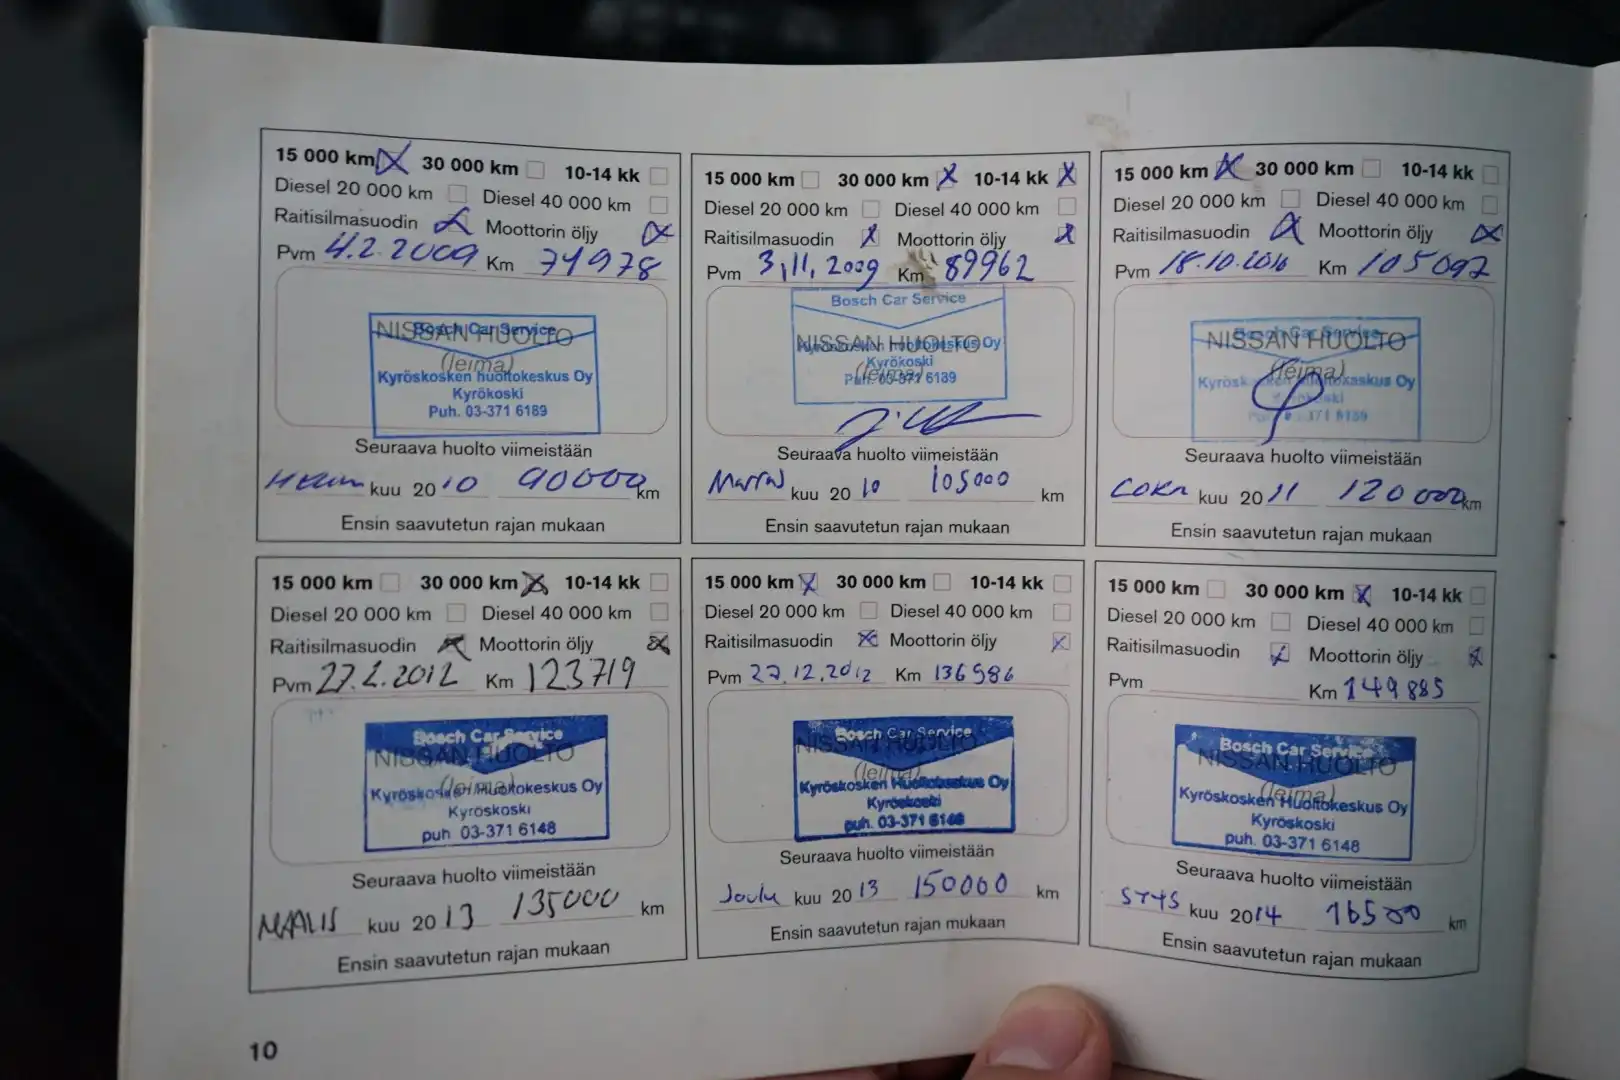 15 000 km 30 000 km 10-14 kk
Diesel 20 000 km Diesel 40 000 km
Raitisilmasuodin Moottorin öljy
Pvm 4.2.2009 Km 74978
Bosch Car Service
NISSAN HUOLTO
(leima)
Kyröskosken huoltokeskus Oy
Kyrökoski
Puh. 03-371 6189
Seuraava huolto viimeistään
kuu 2010 90000 km
Ensin saavutetun rajan mukaan
15 000 km 30 000 km 10-14 kk
Diesel 20 000 km Diesel 40 000 km
Raitisilmasuodin Moottorin öljy
Pvm 3,11,2009 Km 89962
Bosch Car Service
NISSAN HUOLTO
Kyröskosken huoltokeskus Oy
Kyrökoski
(leima)
Puh. 03-371 6189
Seuraava huolto viimeistään
Marras kuu 2010 105000 km
Ensin saavutetun rajan mukaan
15 000 km 30 000 km 10-14 kk
Diesel 20 000 km Diesel 40 000 km
Raitisilmasuodin Moottorin öljy
Pvm 18.10.2010 Km 105092
Bosch Car Service
NISSAN HUOLTO
(leima)
Kyröskosken huoltokeskus Oy
Seuraava huolto viimeistään
LOKA kuu 2011 120000 km
Ensin saavutetun rajan mukaan
15 000 km 30 000 km 10-14 kk
Diesel 20 000 km Diesel 40 000 km
Raitisilmasuodin Moottorin öljy
Pvm 27.2.2012 Km 123719
Bosch Car Service
NISSAN HUOLTO
(leima)
Kyröskosken Huoltokeskus Oy
Kyröskoski
puh 03-371 6148
Seuraava huolto viimeistään
MAALIS kuu 2013 135000 km
Ensin saavutetun rajan mukaan
15 000 km 30 000 km 10-14 kk
Diesel 20 000 km Diesel 40 000 km
Raitisilmasuodin Moottorin öljy
Pvm 27.12.2012 Km 136586
Bosch Car Service
NISSAN HUOLTO
(leima)
Kyröskosken Huoltokeskus Oy
Kyröskoski
puh. 03-371 6148
Seuraava huolto viimeistään
Joulu kuu 2013 150000 km
Ensin saavutetun rajan mukaan
15 000 km 30 000 km 10-14 kk
Diesel 20 000 km Diesel 40 000 km
Raitisilmasuodin Moottorin öljy
Pvm Km 149885
Bosch Car Service
NISSAN HUOLTO
(leima)
Kyröskosken Huoltokeskus Oy
Kyröskoski
puh. 03-371 6148
Seuraava huolto viimeistään
SYYS kuu 2014 16500 km
Ensin saavutetun rajan mukaan
10